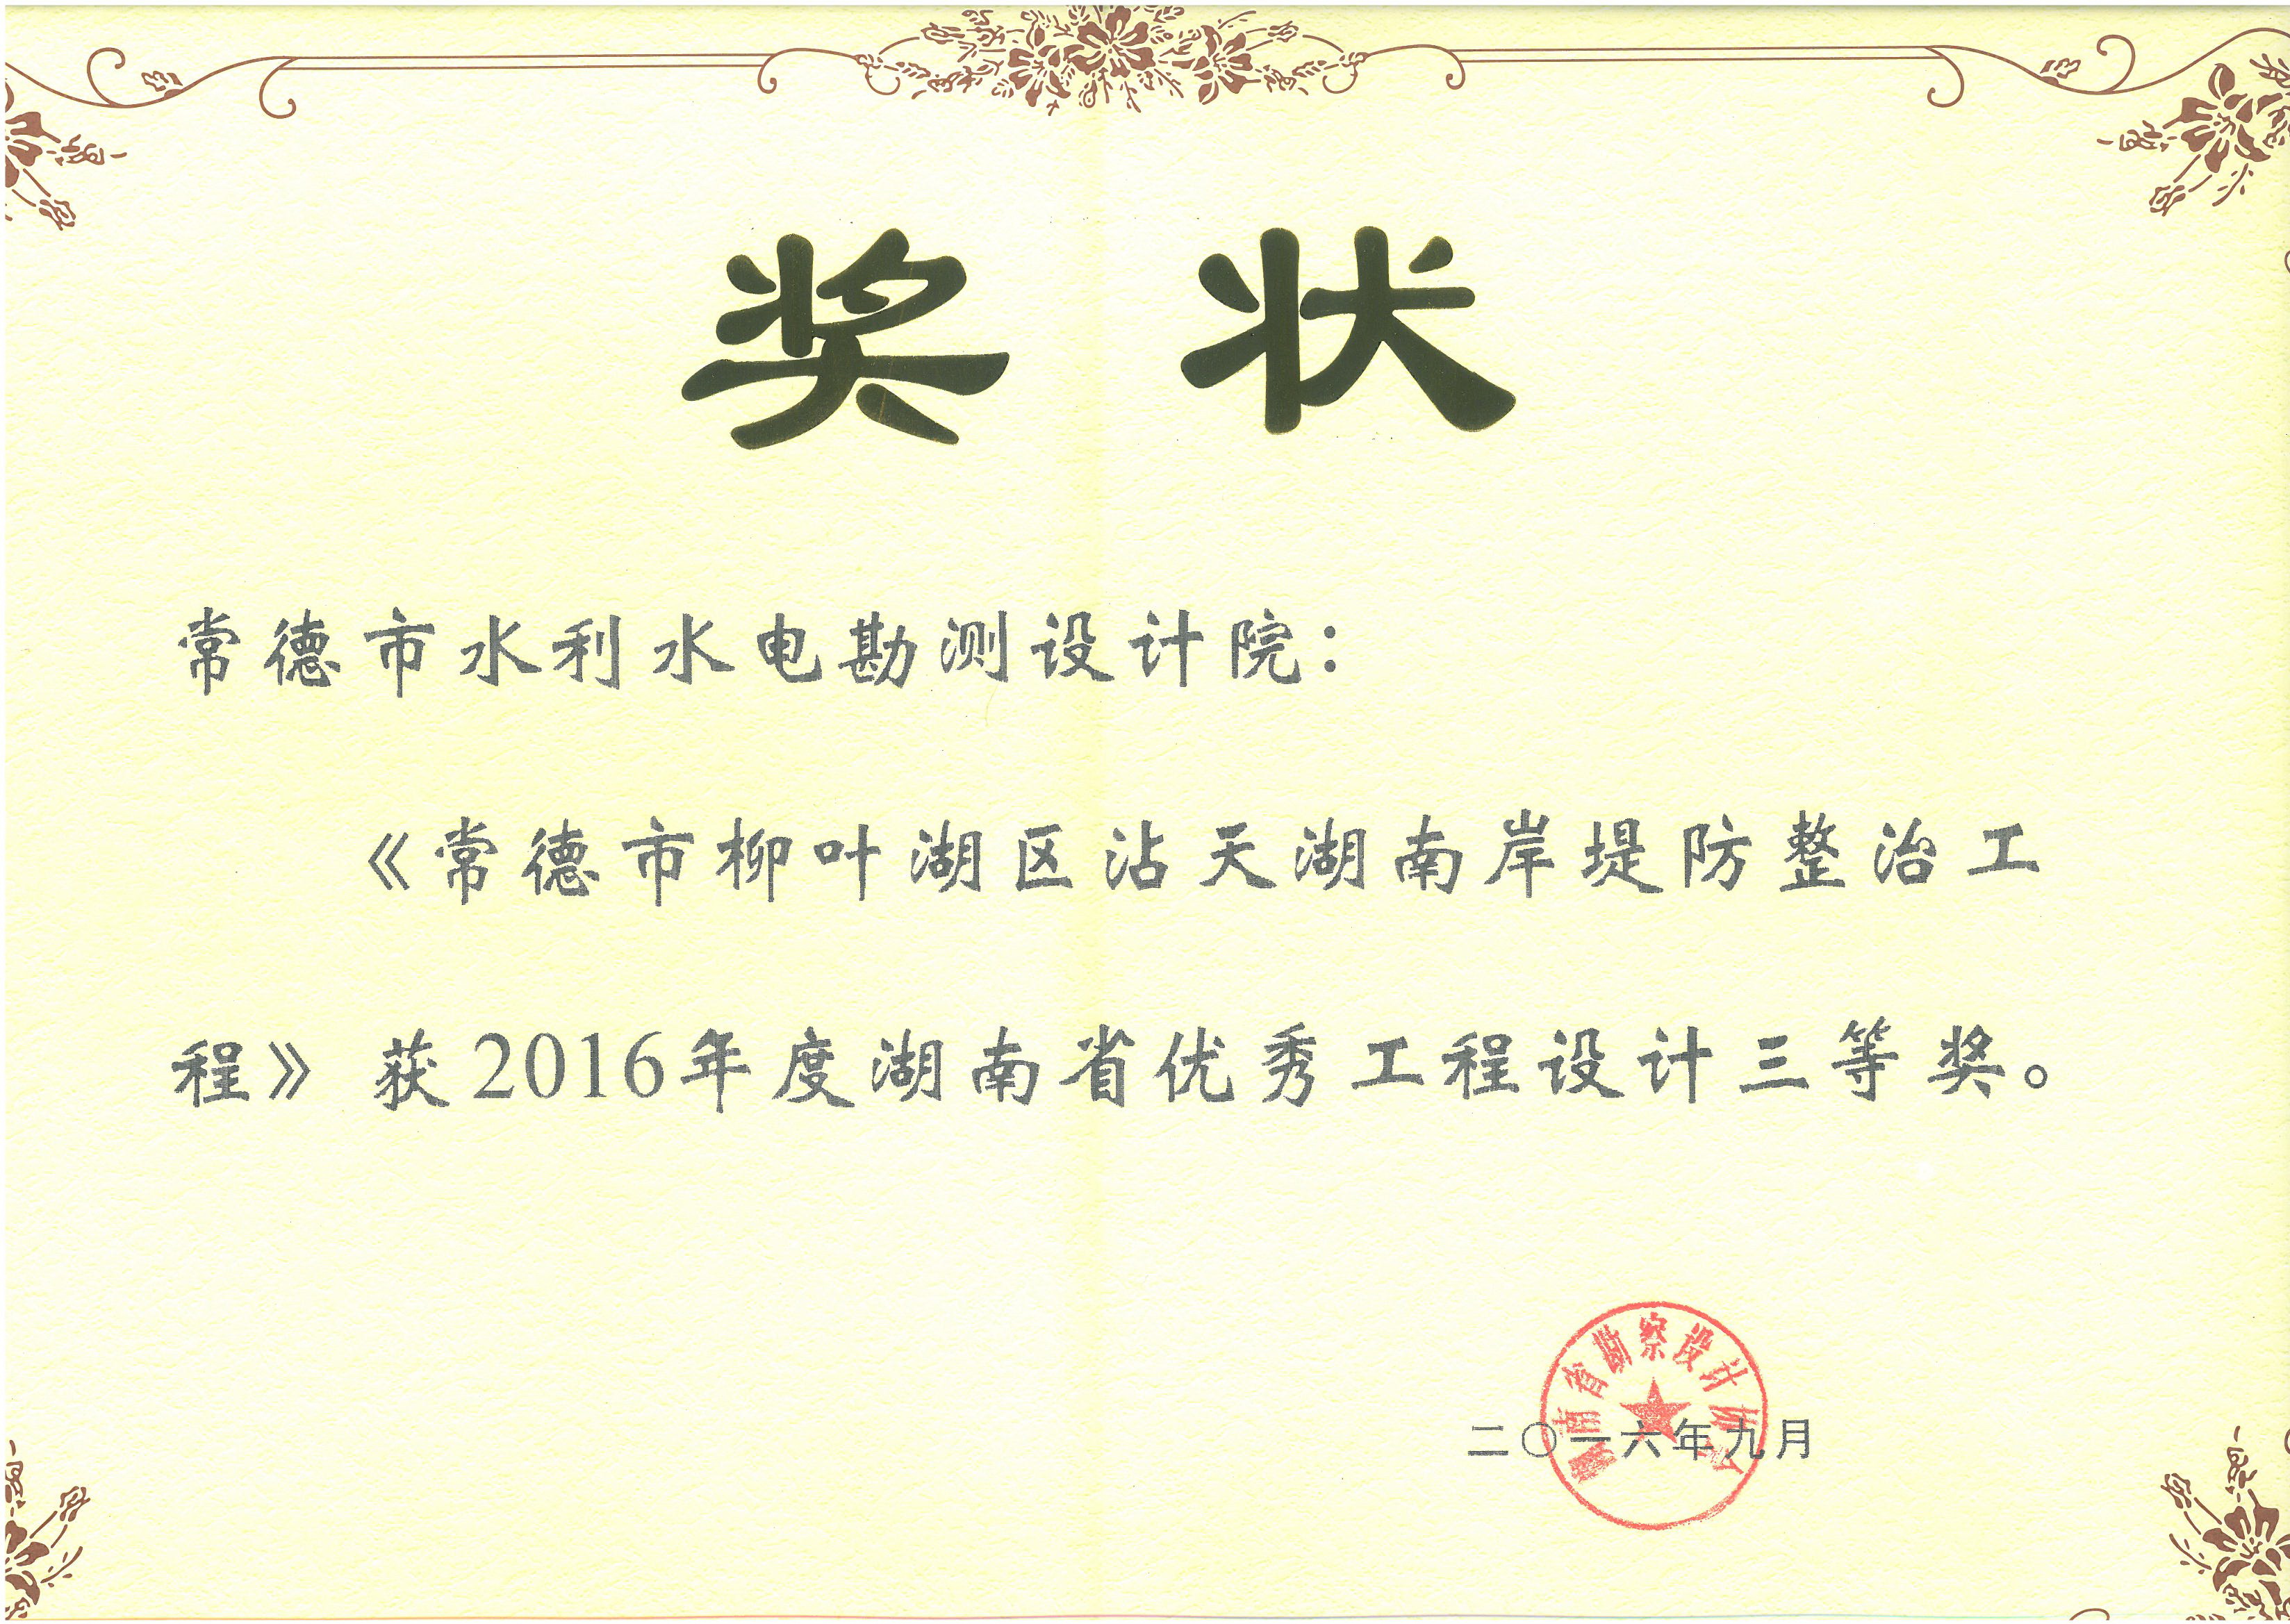 奖状
常德市水利水电勘测设计院：
《常德市柳叶湖区沾天湖南岸堤防整治工
程》获2016年度湖南省优秀工程设计三等奖。
湖南省勘察设计协会
二〇一六年九月